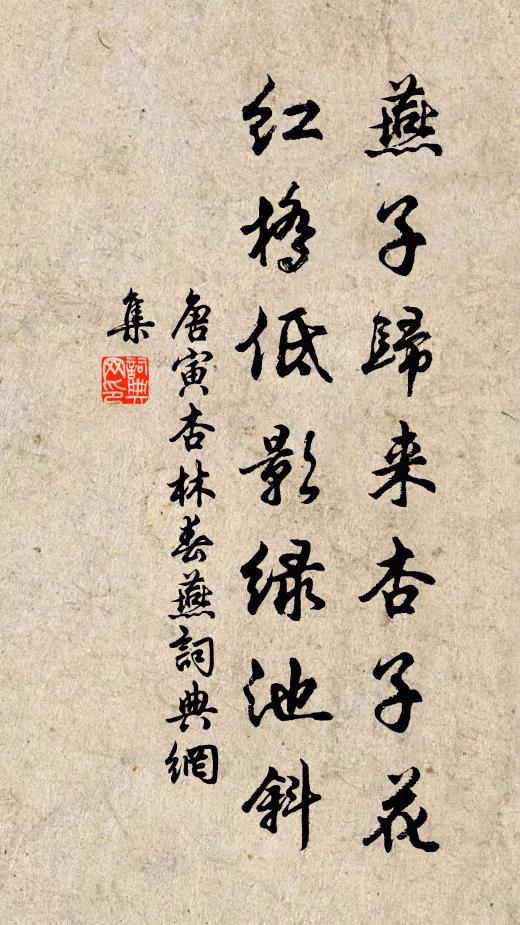 燕子歸来杏子花
红橋低影绿池斜
唐寅杏林春燕詞典網
集
詞典
网印